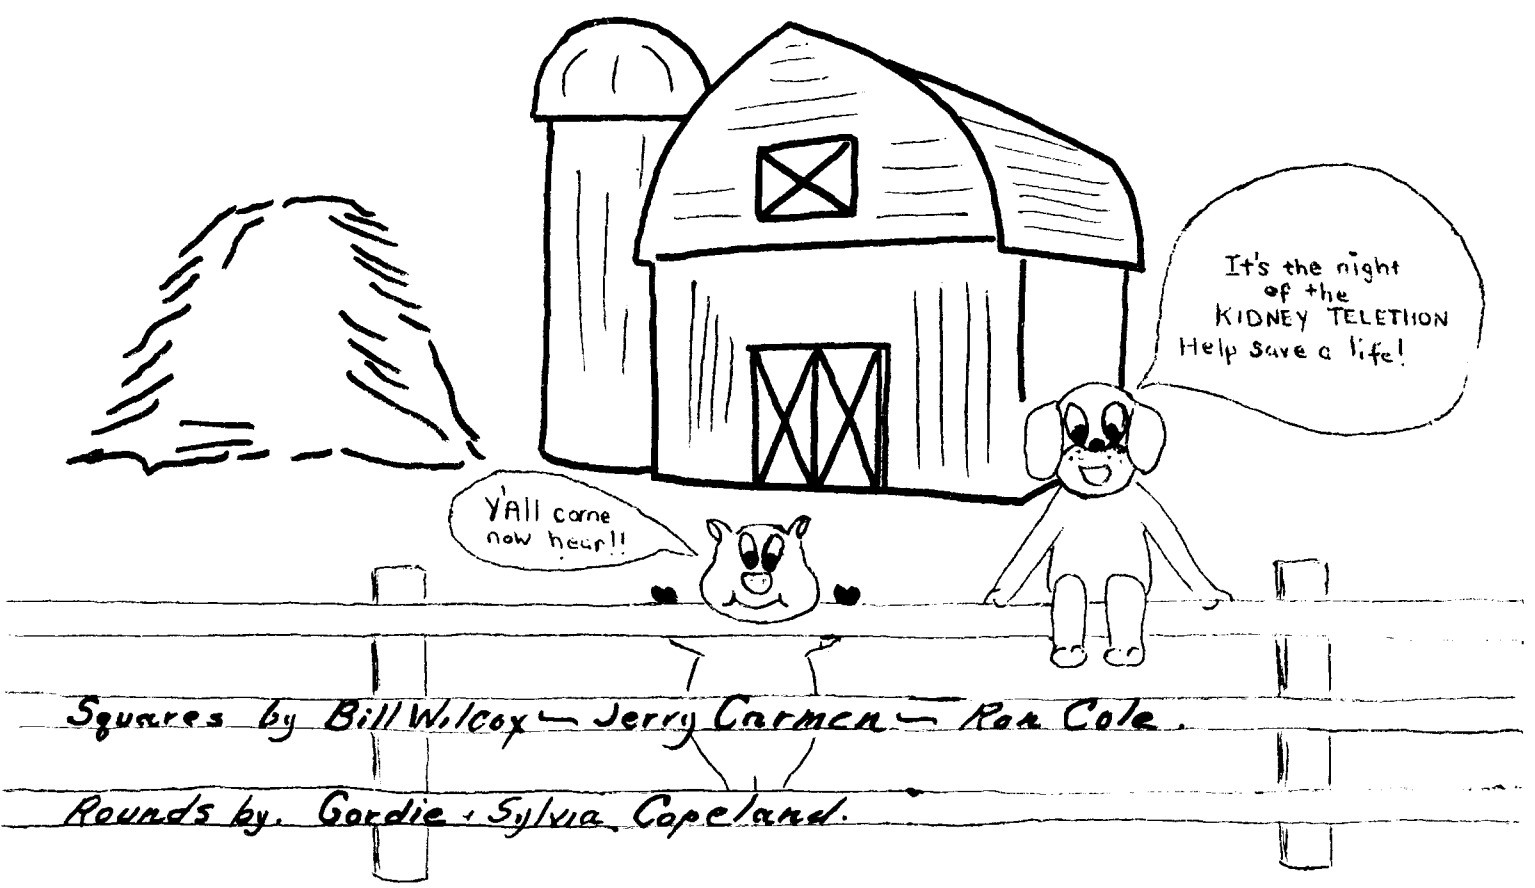 It's the night
of the
KIDNEY TELETHON
Help save a life!
Y'All come
now hear!!
Squares by Bill Wilcox — Jerry Carmen — Ron Cole.
Rounds by. Gordie + Sylvia Copeland.